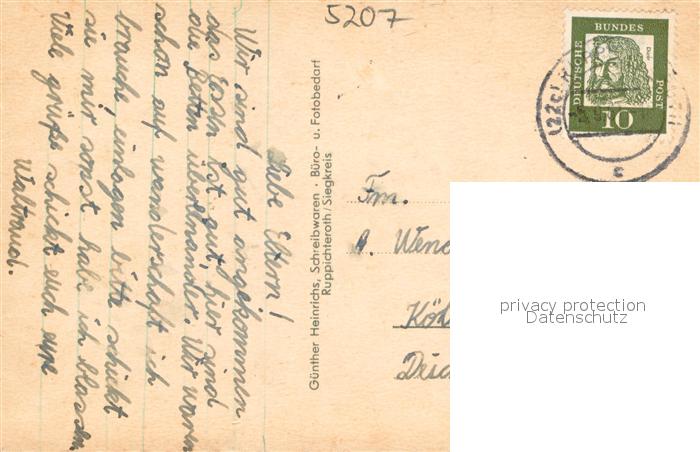 5207
Liebe Eltern!
Wir sind gut angekommen
das Essen ist gut, hier sind
die Betten übereinander. Wir waren
schon auf wanderschaft ich
brauche einlagen bitte schickt
sie mir sonst habe ich blassen
Viele grüße schickt euch eure
Waltraud.
Günther Heinrichs, Schreibwaren · Büro- u. Fotobedarf
Ruppichteroth/Siegkreis
DEUTSCHE
BUNDES
POST
Dürer
10
(22c)
c
Fm.
Wend
Köl
privacy protection
Datenschutz